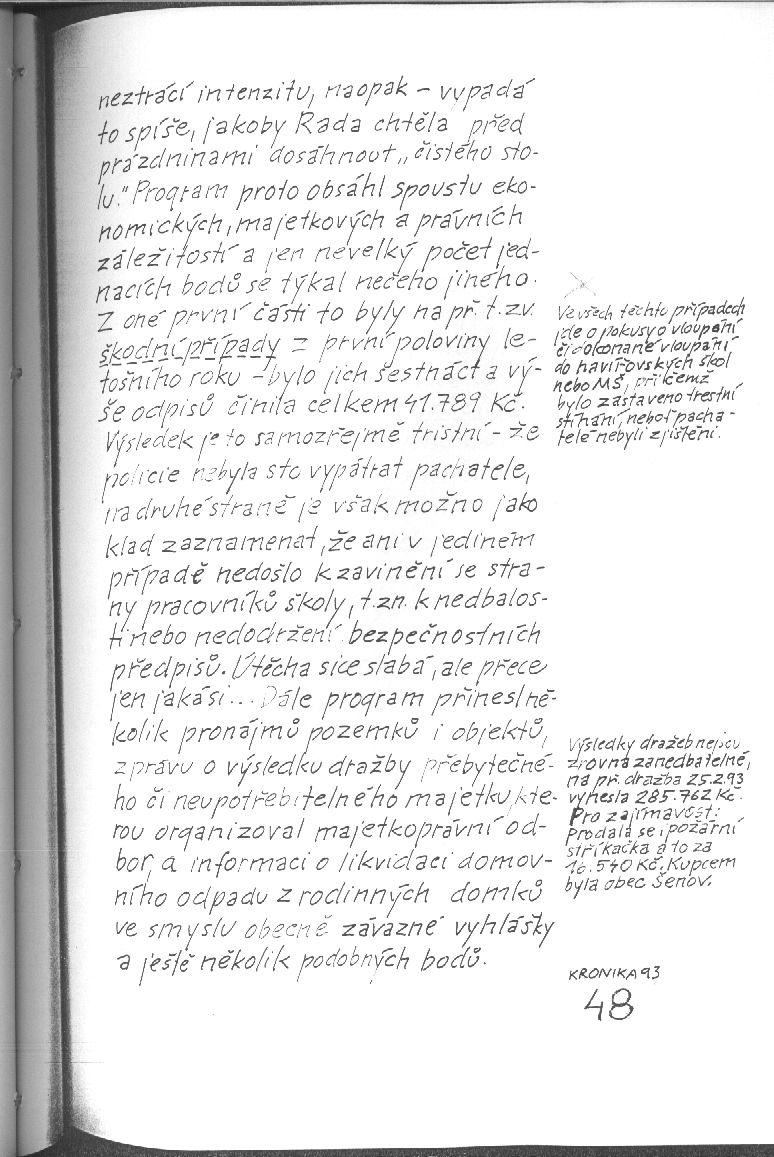 neztrácí intenzitu, naopak – vypadá
to spíše, jakoby Rada chtěla před
prázdninami dosáhnout „čistého sto-
lu." Program proto obsáhl spoustu eko-
nomických, majetkových a právních
záležitostí a jen nevelký počet jed-
nacích bodů se týkal nečeho jiného.
Z oné první části to byly na př. t.zv.
škodní případy z první poloviny le-
tošního roku – bylo jich šestnáct a vý-
še odpisů činila celkem 41.789 Kč.
Výsledek je to samozřejmě tristní – že
policie nebyla sto vypátrat pachatele,
na druhé straně je však možno jako
klad zaznamenat, že ani v jediném
případě nedošlo k zavinění se stra-
ny pracovníků školy, t.zn. k nedbalos-
ti nebo nedodržení bezpečnostních
předpisů. Útěcha sice slabá, ale přece
jen jakási... Dále program přinesl ně-
kolik pronájmů pozemků i objektů,
zprávu o výsledku dražby přebytečné-
ho či neupotřebitelného majetku, kte-
rou organizoval majetkoprávní od-
bor, a informaci o likvidaci domov-
ního odpadu z rodinných domků
ve smyslu obecně závazné vyhlášky
a ještě několik podobných bodů.
Ve všech těchto případech
jde o pokusy o vloupání
či dokonané vloupání
do havířovských škol
nebo MŠ, při čemž
bylo zastaveno trestní
stíhání, neboť pacha-
telé nebyli zjištěni.
Výsledky dražeb nejsou
zrovna zanedbatelné,
na př. dražba 25.2.93
vynesla 285.762 Kč.
Pro zajímavost:
Prodala se i požární
stříkačka a to za
16.540 Kč. Kupcem
byla obec Šenov.
KRONIKA 93
48